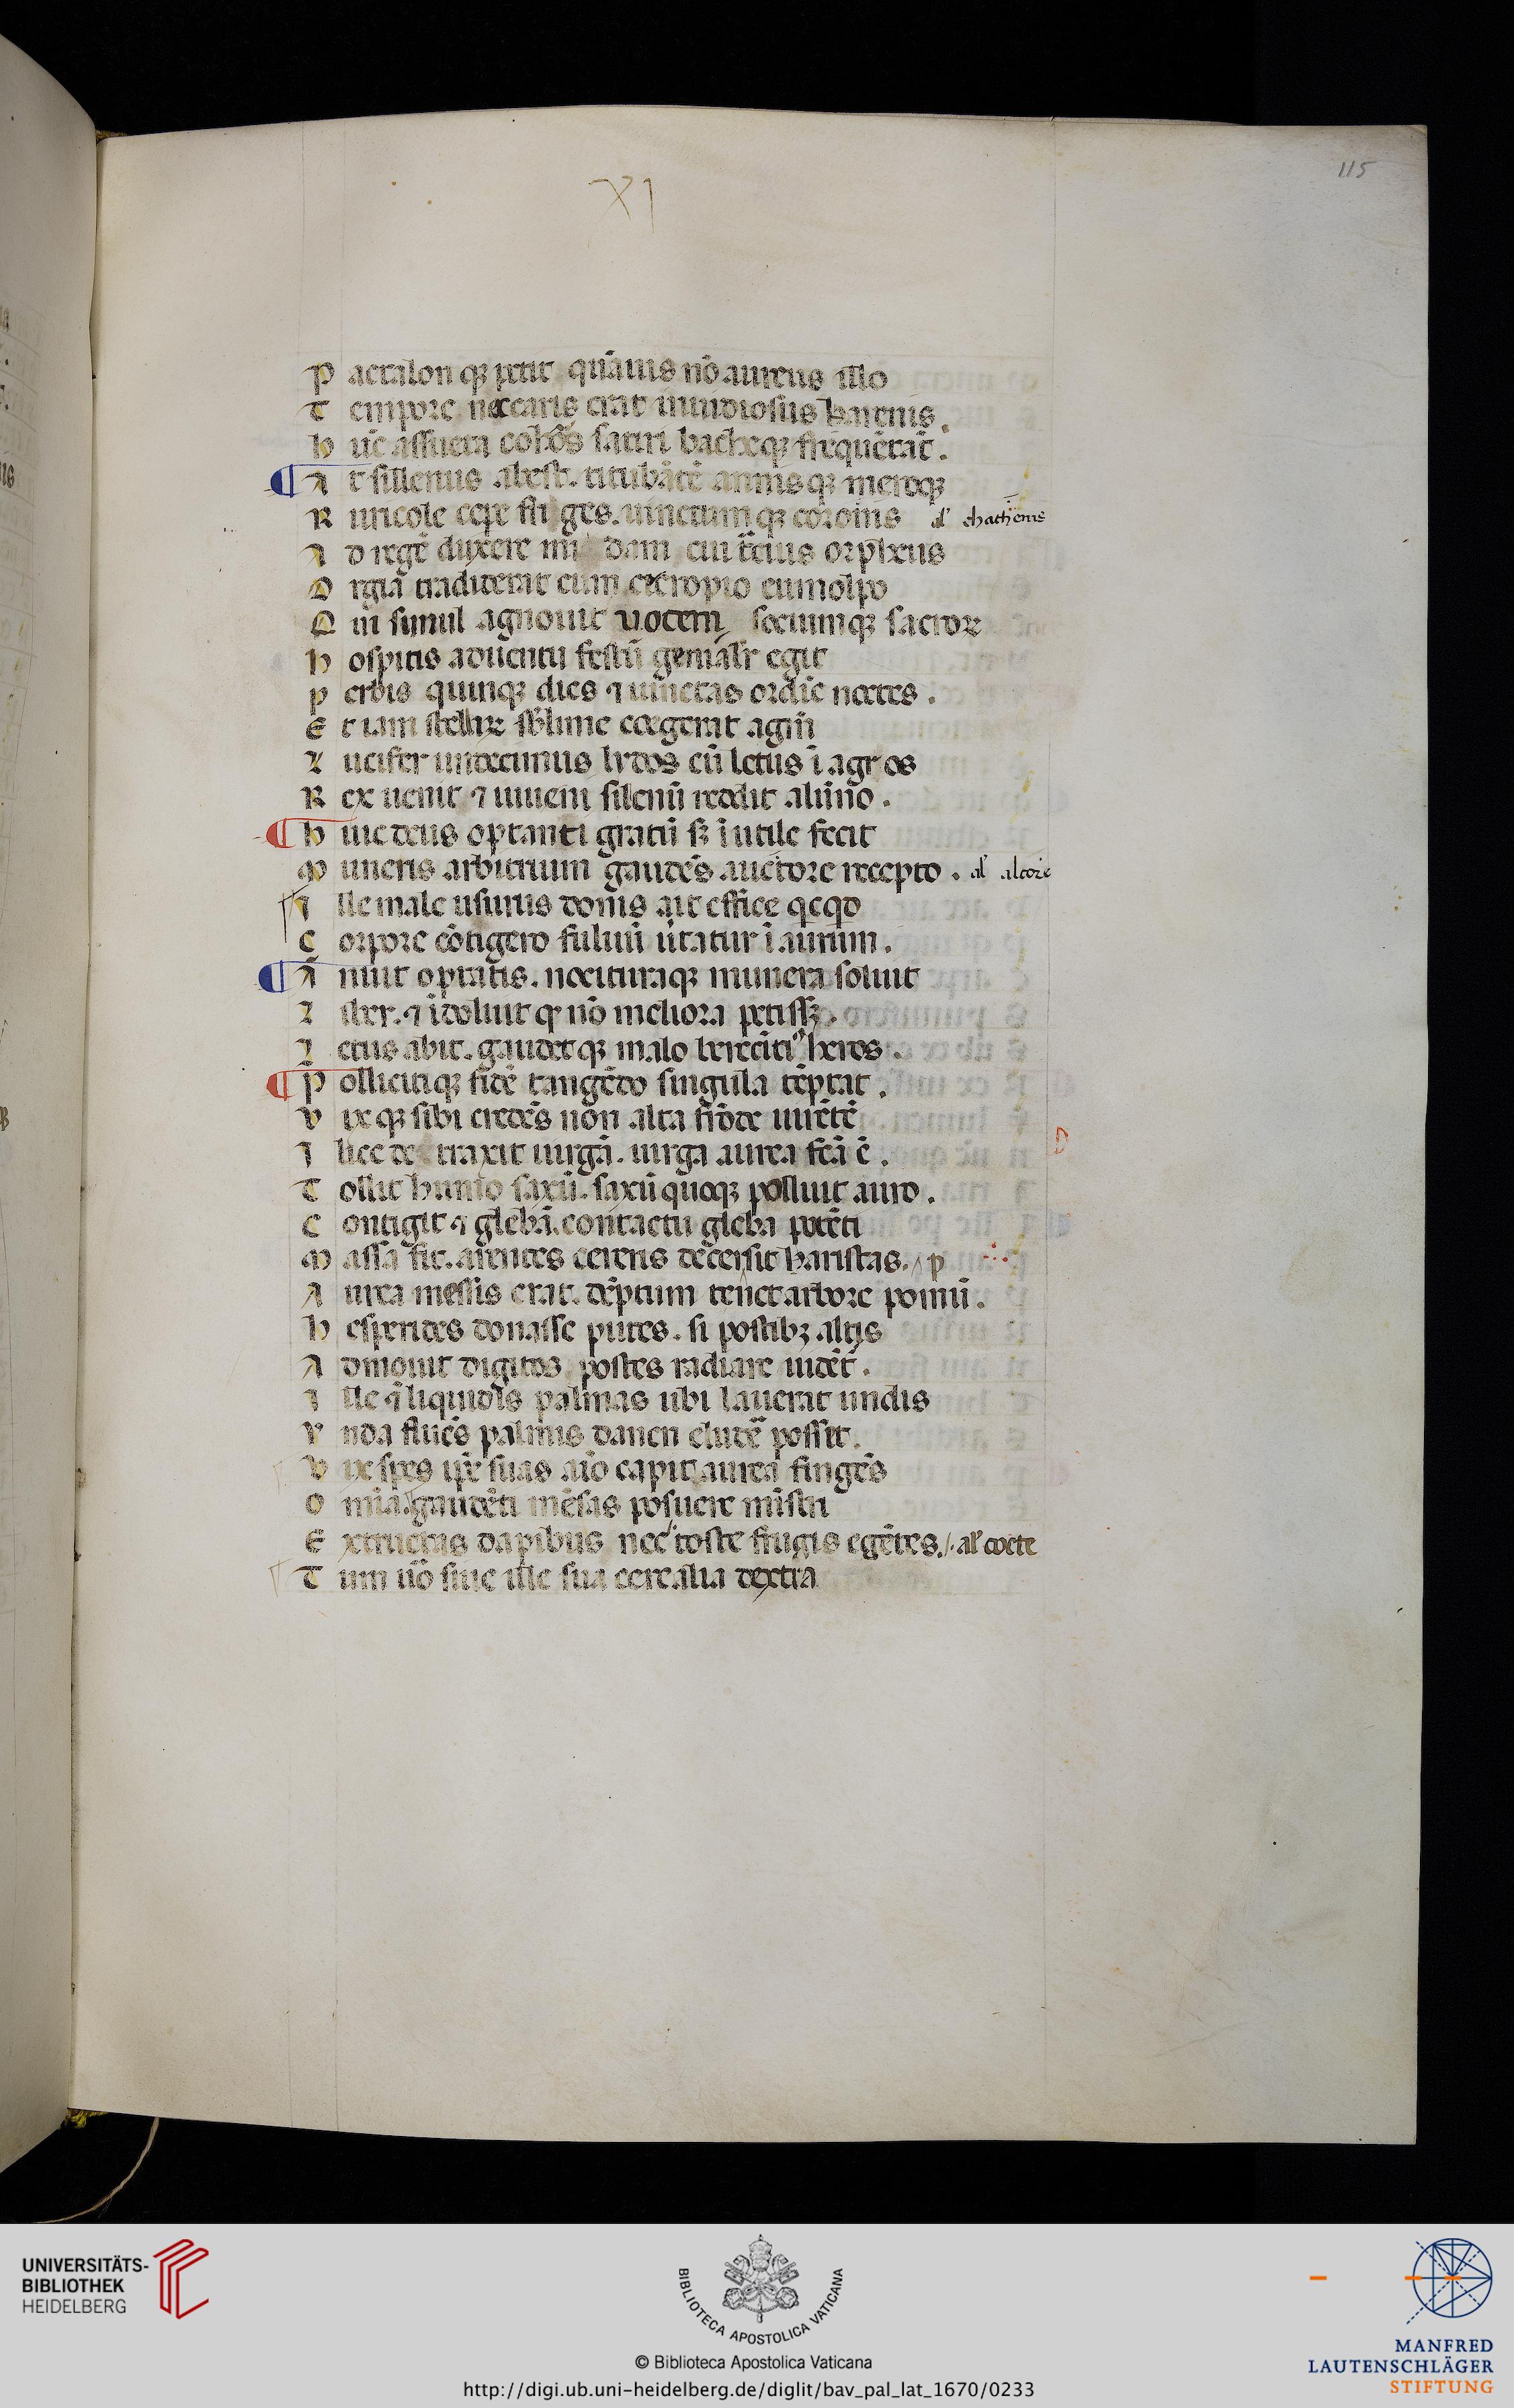 115
XI
P actalon qꝫ petit quāuis nō aureus illo
T empore nec caris erat inuidiosus harenis.
h uic assueta cohors satiri bacheqꝫ frequētāt.
A t sillenus abest. titubātē annisqꝫ meroqꝫ
R uricole cepe friges. uinctumqꝫ coronis al' chathenis
A d regē duxere midam cui tcius orpheus
O rgia tradiderat cum cecropio eumolpo
Q ui simul agnouit uocem sociumqꝫ sacroꝝ
h ospitis aduentu festū genialr̄ egit
p erbis quinqꝫ dies ⁊ iunctas ordīe noctes.
E t iam stellaꝝ sblime coegerat agmī
L ucifer undecimus lydos cū letus ī agros
R ex uenit ⁊ iuueni silenū reddit alūno.
h uic deus optanti gratū sꝫ īutile fecit
M uneris arbitrium gaudēs auctore recepto. al' altore
I lle male usurus donis ait effice qcqd
C orpore cōtigero fuluū ūtatur ī aurum.
A nnuit optatis. nocituraqꝫ munera soluit
L iber. ⁊ īdoluit qꝫ nō meliora petissꝫ.
L etus abit. gaudetqꝫ malo berecīti' heros.
P ollicitiqꝫ fidē tangēdo singula tēptat.
V ixqꝫ sibi credēs non alta frōde uirētē
I lice detraxit uirgā. uirga aurea fcā ē.
T ollit humo saxū. saxū quoqꝫ polluit auro.
C ontigit ⁊ glebā. contactu gleba potēti
M assa fit. arentes cereris decersit haristas. p
A urea messis erat. dēptum tenet arbore pomū.
h esperides donasse putes. si postibꝫ altis
A dmouit digitos postes radiare uidēt̄.
I lle ⁊ liquidis palmas ubi lauerat undis
V nda fluēs palmis danen eludē posset.
V ix spes ipē suas aīo capit aurea fingēs
O mīa. gaudēti mēsas posuere mīstri
E xtructas dapibus nec toste frugis egētes. al' cocte
T um uō siue ille sua cerealia dextra
D
UNIVERSITÄTS-
BIBLIOTHEK
HEIDELBERG
BIBLIOTECA APOSTOLICA VATICANA
© Biblioteca Apostolica Vaticana
http://digi.ub.uni-heidelberg.de/diglit/bav_pal_lat_1670/0233
MANFRED
LAUTENSCHLÄGER
STIFTUNG